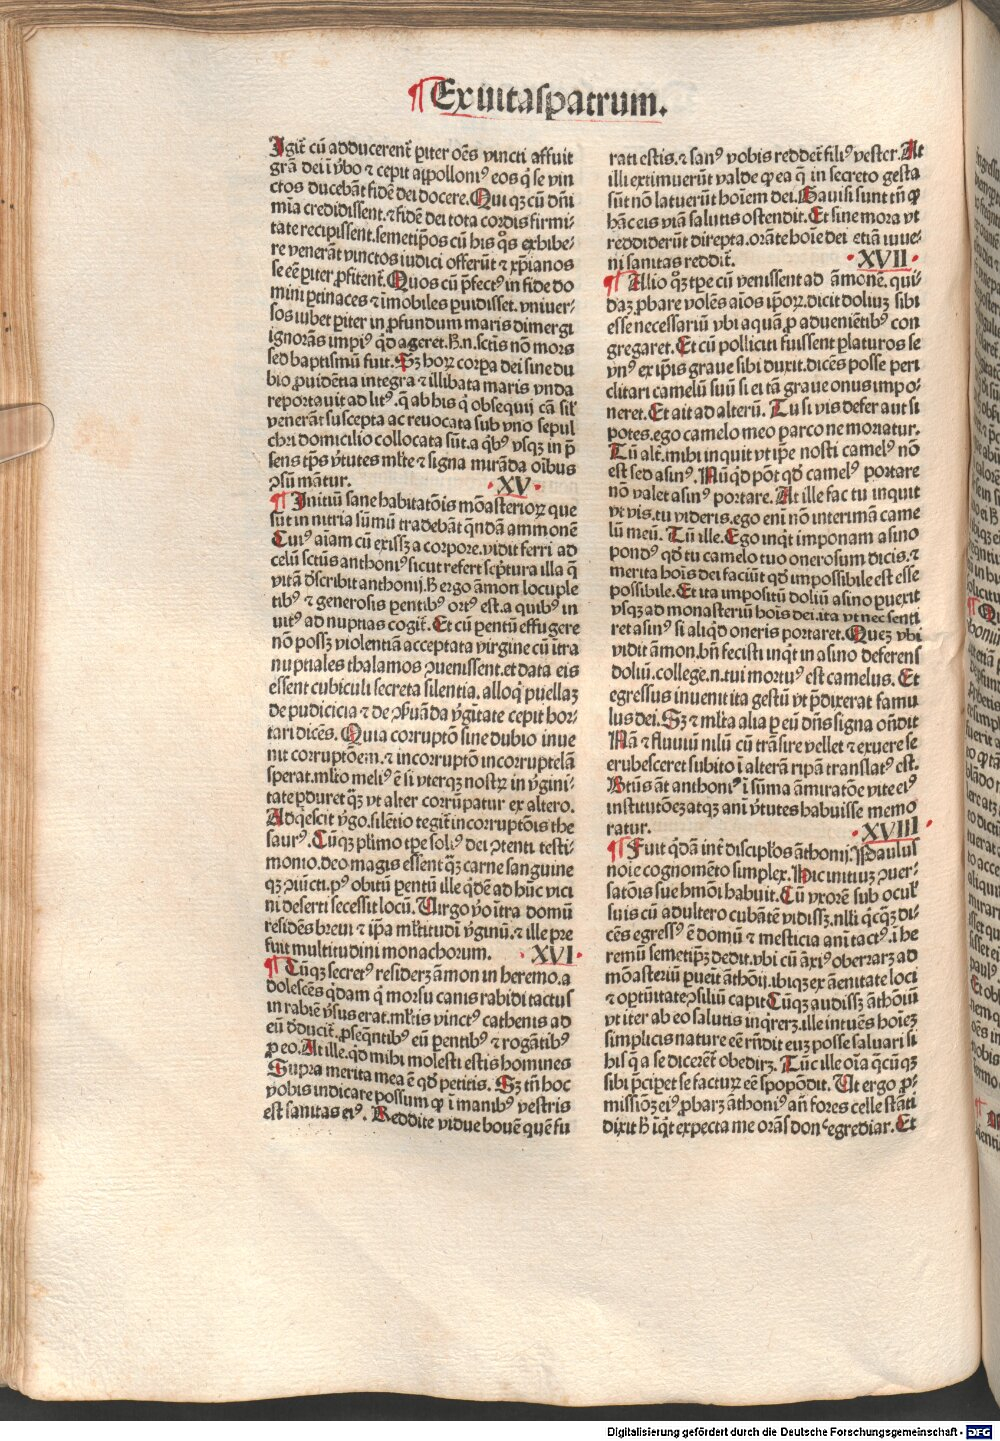 ¶ Ex uitaspatrum.
Igit̄ cū adducerent̄ ꝑiter oēs vincti affuit
grā dei ī v̓bo ⁊ cepit appolloniꝰ eos q̇ se vin
ctos ducebāt fidē dei docere. Qui qꝫ cū dn̄i
mīa credidissent.⁊ fidē dei tota cordis firmi⸗
tate recipissent.semetip̄os cū his q̊s exhibe⸗
re venerāt vinctos iudici offerūt ⁊ xp̄ianos
se eē ꝑiter ꝓfitent̄. Quos cū p̄fectꝰ in fide do
mini ꝑtinaces ⁊ īmobiles ꝑuidisset. vniuer⸗
sos iubet ꝑiter in ꝓfundum maris dimergi
ignorās impiꝰ qd̄ ageret. h̄.n.sctīs nō mors
sed baptismū fuit. Sꝫ horꝝ corꝑa dei sine du
bio ꝓuidētia integra ⁊ illibata maris vnda
reportauit ad litꝰ. q̄ ab his q̇ obsequij cā sil̄
venerāt suscepta ac reuocata sub vno sepul
chri domicilio collocata sūt.a q̇bꝰ vsqꝫ in p̄
sens tp̄s v̓tutes ml̄te ⁊ signa mirāda oībus
ꝯsūmātur. ·XV·
¶ Initiū sane habitatōis mōasteriorꝝ que
sūt in nitria sūmū tradebāt qn̄dā ammonē
Cuiꝰ aīam cū exissꝫ a corpore.vidit ferri ad
celū sctūs anthoniꝰ sicut refert scp̄tura illa q̄
vitā d̓scribit anthonij. h̄ ergo āmon locuple
tibꝰ ⁊ generosis ꝑentibꝰ ortꝰ est.a quibꝰ in
uitꝰ ad nuptias cogit̄. Et cū ꝑentū effugere
nō possꝫ violentiā acceptata virgine cū itra
nuptiales thalamos ꝯuenissent.et data eis
essent cubiculi secreta silentia.alloq̇ puellaꝫ
de pudicicia ⁊ de ꝯseruāda v̓gītate cepit hor⸗
tari dicēs. Quia corruptō sine dubio inue
nit corruptōem.⁊ incorruptō incorruptelā
sperat.ml̄to meliꝰ ē si vterqꝫ nostrꝝ in v̓gini⸗
tate ꝑduret q̄ꝫ vt alter corrūpatur ex altero.
Adq̇escit v̓go.silētio tegit̄ incorruptōis the
saurꝰ. Cūqꝫ pl̄imo tꝑe soliꝰ dei ꝯtenti testi⸗
monio.deo magis essent q̄ꝫ carne sanguine
qꝫ ꝯiūcti.pꝰ obitū ꝑentū ille q̇dē ad hūc vici
ni deserti secessit locū. Uirgo v̓o ītra domū
residēs breui ⁊ ip̄a ml̄titudī v̓ginū.⁊ ille pre
fuit multitudini monachorum. ·XVI·
¶ Cūqꝫ secretꝰ residerꝫ āmon in heremo.a
dolescēs q̇dam q̇ morsu canis rabidi tactus
in rabiē v̓sus erat.ml̄tis vinctꝰ cathenis ad
eū d̓ducit̄.ꝓseq̄ntibꝰ eū ꝑentibꝰ ⁊ rogātibꝰ
ꝓ eo. At ille.qd̄ mihi molesti estis homines
Supra merita mea ē qd̓ petitis. Sꝫ tn̄ hoc
vobis indicare possum ꝙ ī manibꝰ vestris
est sanitas eiꝰ. Reddite vidue bouē quē fu
rati estis.⁊ sanꝰ vobis reddet̄ filiꝰ vester. At
illi extimuerūt valde ꝙ ea q̄ in secreto gesta
sūt nō latuerūt hoīem dei. Gauisi sunt tn̄ ꝙ
hāc eis viā salutis ostendit. Et sine mora vt
reddiderūt direpta.orāte hoīe dei etiā iuue⸗
ni sanitas reddit̄. ·XVII·
¶ Allio qͦꝫ tꝑe cū venissent ad āmonē. qui⸗
daꝫ ꝓbare volēs aīos ip̄oꝝ.dicit doliuꝫ sibi
esse necessariū vbi aquā ꝓ aduenietibꝰ con
gregaret. Et cū polliciti fuissent ꝑlaturos se
vnꝰ ex ip̄is graue sibi duxit.dicēs posse peri
clitari camelū suū si ei tā graue onus impo⸗
neret. Et ait ad alterū. Tu si vis defer aut si
potes.ego camelo meo parco ne moriatur.
Tū alt̄.mihi inquit vt ip̄e nosti camelꝰ nō
est sed asinꝰ. Nū qd̄ pōt qd̓ camelꝰ portare
nō valet asinꝰ portare. At ille fac tu inquit
vt vis.tu videris.ego eni nō interimā came
lū meū. Tū ille. Ego inq̇t imponam asino
pondꝰ qd̓ tu camelo tuo onerosum dicis.⁊
merita hoīs dei faciūt qd̓ impossibile est esse
possibile. Et ita impositū doliū asino ꝑuexit
vsqꝫ ad monasteriū hoīs dei.ita vt nec senti
ret asinꝰ si aliq̇d oneris portaret. Queꝫ vbi
vidit āmon.bn̄ fecisti inq̇t in asino deferens
doliū.college.n.tui mortuꝰ est camelus. Et
egressus inuenit ita gestū vt p̄dixerat famu
lus dei. Sꝫ ⁊ ml̄ta alia ꝑ eū dn̄s signa on̄dit
Nā ⁊ fluuiū nilū cū trāsire vellet ⁊ exuere se
erubesceret subito ī alterā ripā translatꝰ est.
Btūs āt anthoniꝰ ī sūma āmiratōe vite eiꝰ
institutōeꝫ atqꝫ ani v̓tutes habuisse memo
ratur. ·XVIII·
¶ Fuit q̇dā int̄ discipl̄os āthonij. Paulus
noīe cognomēto simplex. Hic initiuꝫ ꝯuer⸗
satōis sue hmōi habuit. Cū vxorē sub oculꝭ
suis cū adultero cubātē vidissꝫ.nl̄li q̇cq̄ꝫ di⸗
cēs egressꝰ ē domū ⁊ mesticia anī tactꝰ.ī he
remū semetip̄ꝫ dedit.vbi cū āxiꝰ oberrarꝫ ad
mōasteriū ꝑueit āthōij.ibiqꝫ ex āenitate loci
⁊ oꝑtūitate ꝯsiliū capit Cūqꝫ audissꝫ āthōiū
vt iter ab eo salutis inq̇rerꝫ.ille intuēs hoīeꝫ
simplicis nature eē rn̄dit euꝫ posse saluari si
his q̄ a se dicerēt̄ obedirꝫ. Tūc ille oīa q̄cūqꝫ
sibi p̄cipet se facturꝫ eē spopōdit. Ut ergo ꝓ⸗
missiōꝫ eiꝰ ꝓbarꝫ āthoniꝰ an̄ fores celle stāti
dixit h̄ īq̇t expecta me orās donᶜ egrediar. Et
Digitalisierung gefördert durch die Deutsche Forschungsgemeinschaft - DFG